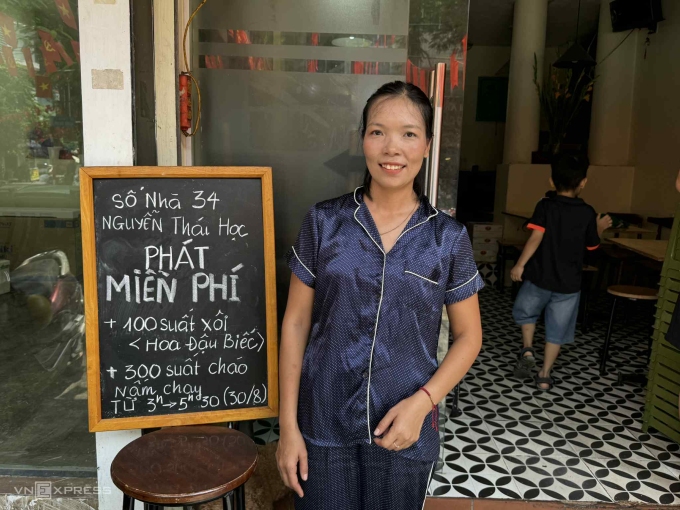 SỐ NHÀ 34
NGUYỄN THÁI HỌC
PHÁT
MIỄN PHÍ
+ 100 SUẤT XÔI
< HOA ĐẬU BIẾC>
+ 300 SUẤT CHÁO
NẤM CHAY
TỪ 3ʰ → 5ʰ30 (30/8)
VNEXPRESS